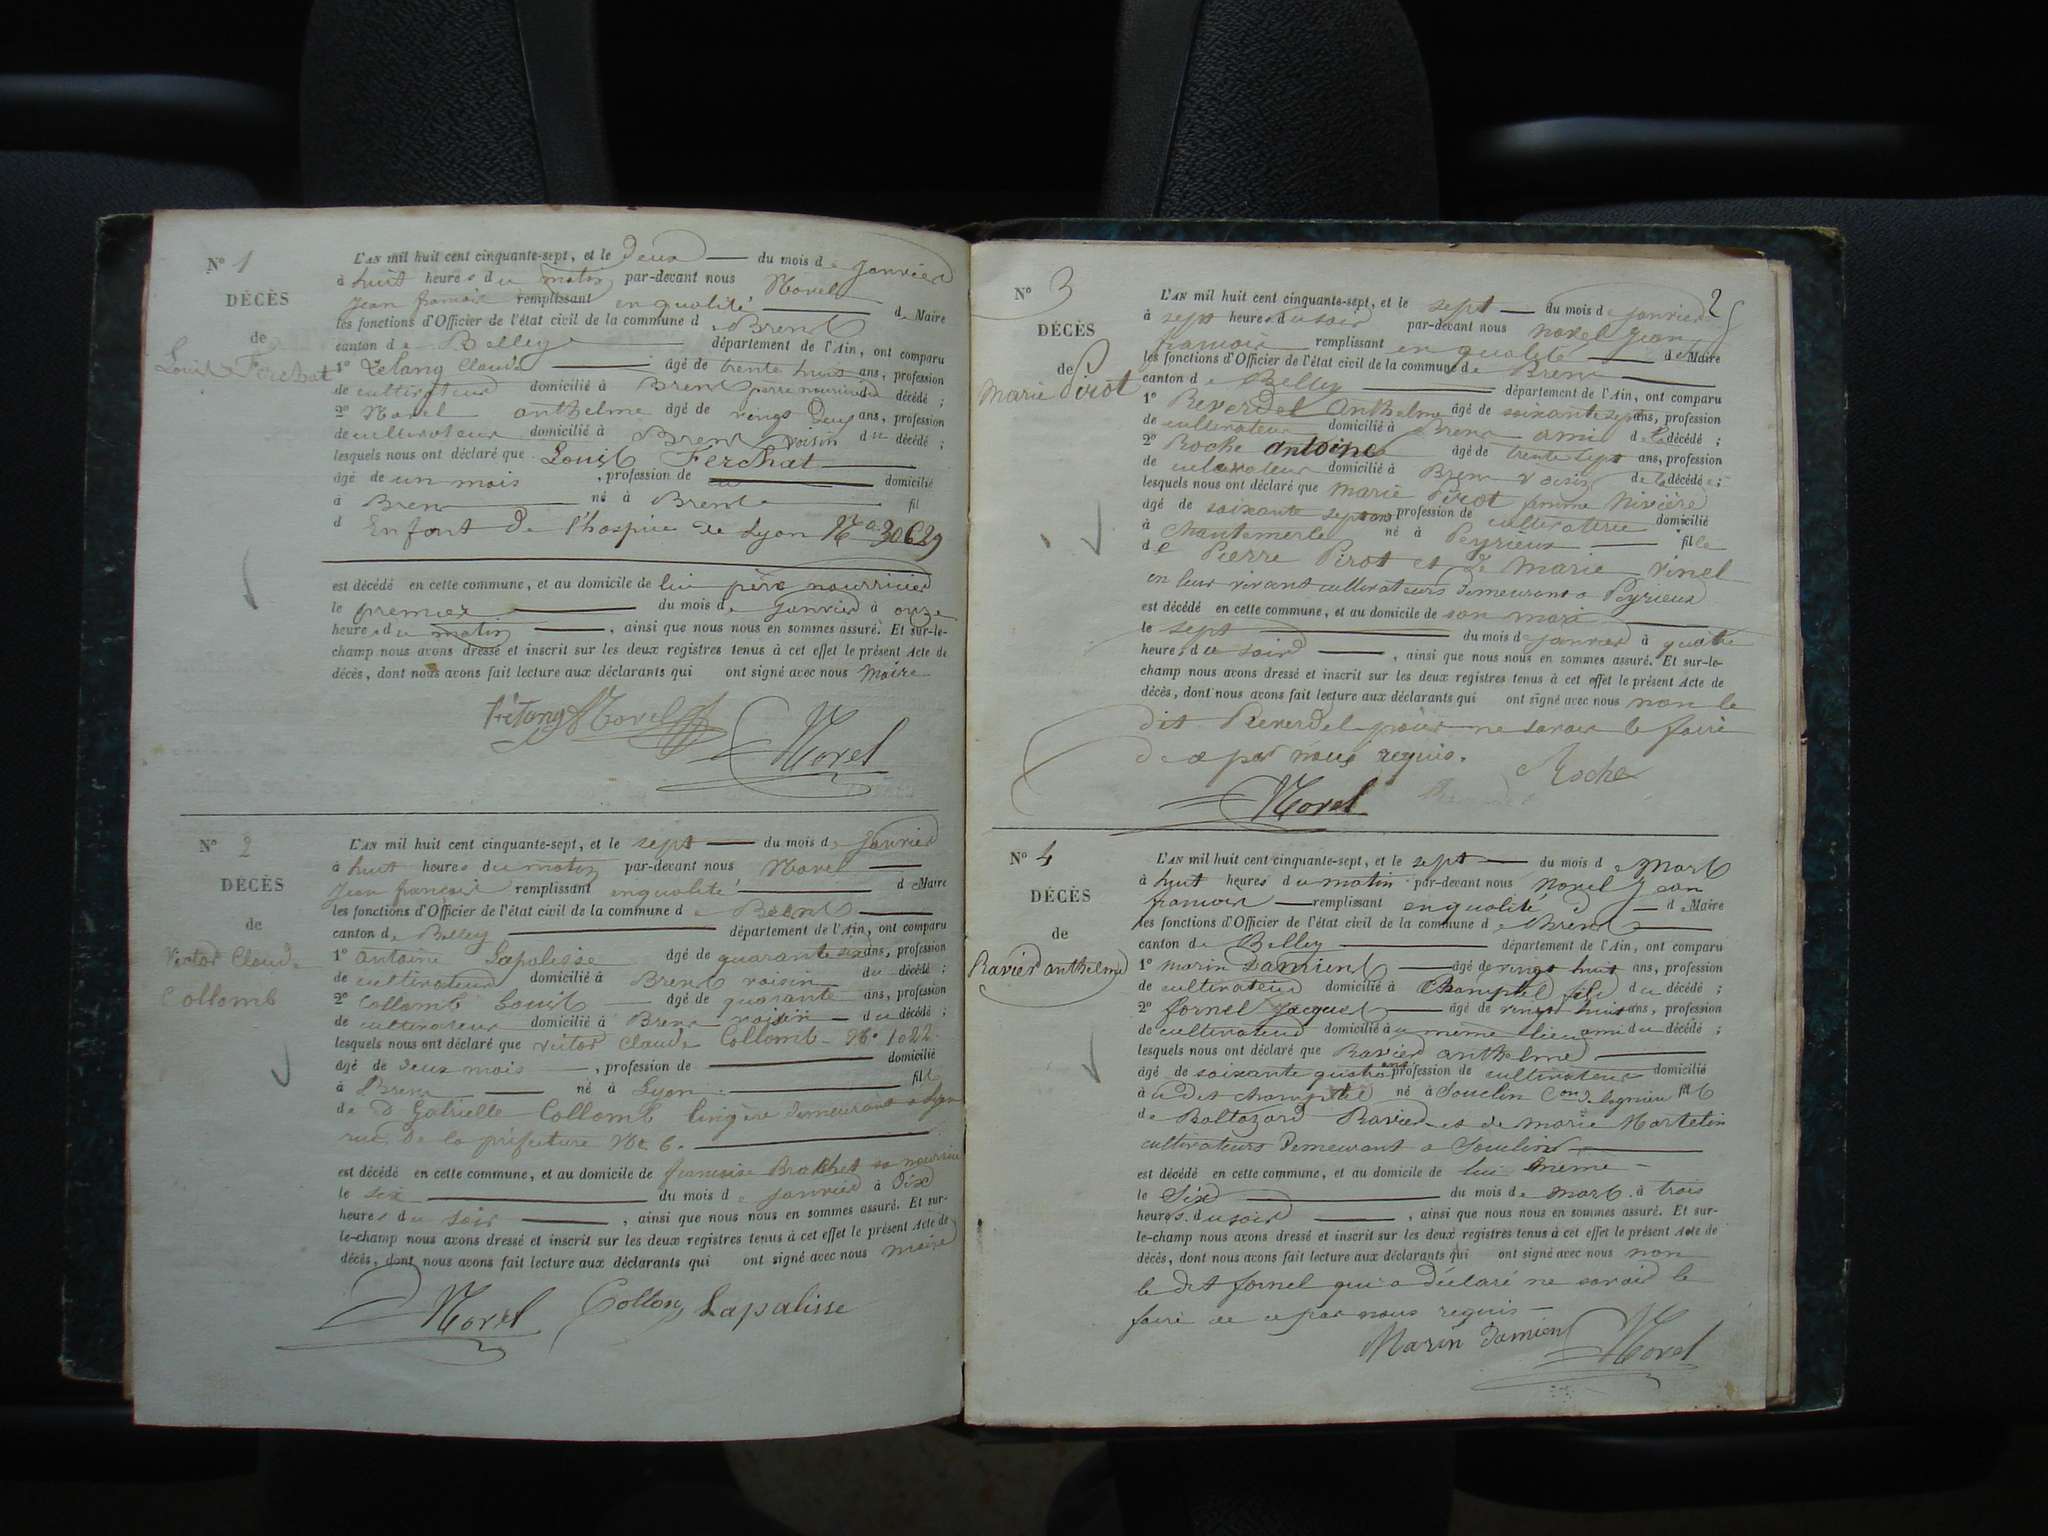 N° 1
DÉCÈS
de
Louis Ferchat
L'AN mil huit cent cinquante-sept, et le Deux du mois de janvier
à huit heures du matin par-devant nous Morel
jean francois remplissant en qualité de Maire
les fonctions d'Officier de l'état civil de la commune de Brens
canton de Belley département de l'Ain, ont comparu
1° Claude âgé de trente huit ans, profession
de cultivateur domicilié à Brens père nourricier du décédé ;
2° Morel anthelme âgé de vingt Deux ans, profession
de cultivateur domicilié à Brens voisin du décédé ;
lesquels nous ont déclaré que Louis Ferchat
âgé de un mois , profession de domicilié
à Brens né à Brens fil
d Enfant de l'hospice de Lyon N° 30629
est décédé en cette commune, et au domicile de lui père nourricier
le premier du mois de janvier à onze
heures du matin , ainsi que nous nous en sommes assuré. Et sur-le-
champ nous avons dressé et inscrit sur les deux registres tenus à cet effet le présent Acte de
décès, dont nous avons fait lecture aux déclarants qui ont signé avec nous Maire
Morel
Morel
N° 2
DÉCÈS
de
Victor Claude
Collomb
L'AN mil huit cent cinquante-sept, et le sept du mois de janvier
à huit heures du matin par-devant nous Morel
jean françois remplissant en qualité de Maire
les fonctions d'Officier de l'état civil de la commune de Brens
canton de Belley département de l'Ain, ont comparu
1° antoine Lapalisse âgé de quarante six ans, profession
de cultivateur domicilié à Brens voisin du décédé ;
2° Collomb Louis âgé de quarante ans, profession
de cultivateur domicilié à Brens voisin du décédé ;
lesquels nous ont déclaré que victor Claude Collomb N° 1022
âgé de deux mois , profession de domicilié
à Brens né à Lyon fils
de D Gabrielle Collomb lingère demeurant a Lyon
rue De la préfecture N° 6.
est décédé en cette commune, et au domicile de francoise Brachet sa nourrice
le six du mois de janvier à Dix
heures du soir , ainsi que nous nous en sommes assuré. Et sur-
le-champ nous avons dressé et inscrit sur les deux registres tenus à cet effet le présent Acte de
décès, dont nous avons fait lecture aux déclarants qui ont signé avec nous maire
Morel Lapalisse
2
N° 3
DÉCÈS
de
Marie Pirot
L'AN mil huit cent cinquante-sept, et le sept du mois de janvier
à sept heures du soir par-devant nous Morel jean
francois remplissant en qualité de Maire
les fonctions d'Officier de l'état civil de la commune de Brens
canton de Belley département de l'Ain, ont comparu
1° Reverdel Anthelme âgé de soixante sept ans, profession
de cultivateur domicilié à Brens ami de la décédé ;
2° Roche antoine âgé de trente sept ans, profession
de cultivateur domicilié à Brens voisin de la décédée ;
lesquels nous ont déclaré que Marie Pirot femme Rivière
âgé de soixante sept ans profession de cultivatrice domicilié
à Chantemerle né à Peyrieux fille
de Pierre Pirot et de Marie vinel
en leur vivant cultivateurs demeurant a Peyrieux
est décédé en cette commune, et au domicile de son mari
le sept du mois de janvier à quatre
heures du soir , ainsi que nous nous en sommes assuré. Et sur-le-
champ nous avons dressé et inscrit sur les deux registres tenus à cet effet le présent Acte de
décès, dont nous avons fait lecture aux déclarants qui ont signé avec nous non le
dit Reverdel pour ne savoir le faire
de ce par nous requis.
Roche
Morel
N° 4
DÉCÈS
de
Ravier anthelme
L'AN mil huit cent cinquante-sept, et le sept du mois de Mars
à huit heures du matin par-devant nous Morel Jean
francois remplissant en qualité de Maire
les fonctions d'Officier de l'état civil de la commune de Brens
canton de Belley département de l'Ain, ont comparu
1° marin Damien âgé de vingt huit ans, profession
de cultivateur domicilié à Champtel du décédé ;
2° fornel jacques âgé de vingt huit ans, profession
de cultivateur domicilié à u meme lieu ami du décédé ;
lesquels nous ont déclaré que Ravier anthelme
âgé de soixante quatre ans profession de cultivateur domicilié
à u dit champtel né à Souclin Con de lagnieu fils
de Baltazard Ravier et de marie Martelin
cultivateurs Demeurant a Souclin
est décédé en cette commune, et au domicile de lui meme
le Six du mois de mars à trois
heures du soir , ainsi que nous nous en sommes assuré. Et sur-
le-champ nous avons dressé et inscrit sur les deux registres tenus à cet effet le présent Acte de
décès, dont nous avons fait lecture aux déclarants qui ont signé avec nous non
le dit fornel qui a déclaré ne savoir le
faire de ce par nous requis
Marin Damien Morel